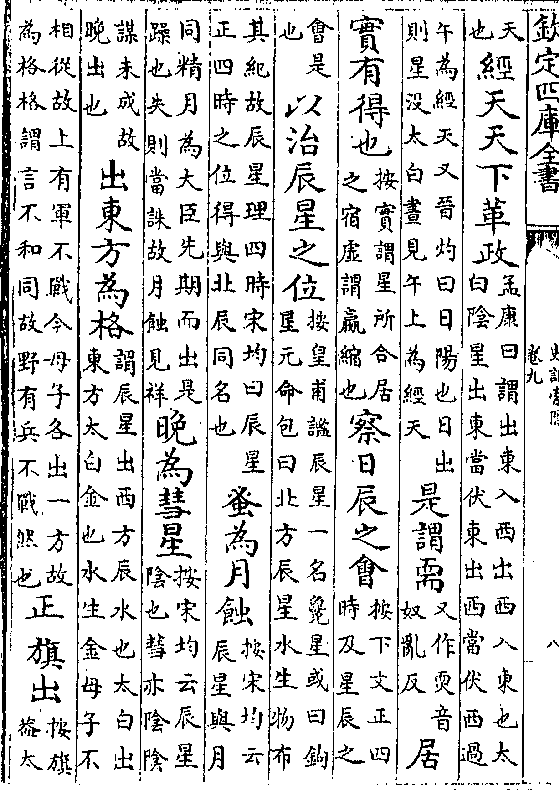 欽定四庫全書
史記索隱
卷九
八
天也經天天下革政孟康曰謂出東入西出西入東也太白陰星出東當伏東出西當伏西過
午為經天又晉灼曰日陽也日出則星没太白晝見午上為經天是謂需又作耎音奴亂反居
實有得也按實謂星所合居之宿虛謂贏縮也察日辰之會按下文正四時及星辰之
會是也以治辰星之位按皇甫謐辰星一名毚星或曰鈎星元命包曰北方辰星水生物布
其紀故辰星理四時宋均曰辰星正四時之位得與北辰同名也蚤為月蝕按宋均云辰星與月
同精月為大臣先期而出是躁也失則當誅故月蝕見祥晚為彗星按宋均云辰星陰也彗亦陰陰
謀未成故晚出也出東方為格謂辰星出西方辰水也太白出東方太白金也水生金母子不
相從故上有軍不戰今母子各出一方故為格格謂言不和同故野有兵不戰然也正旗出按旗蓋太